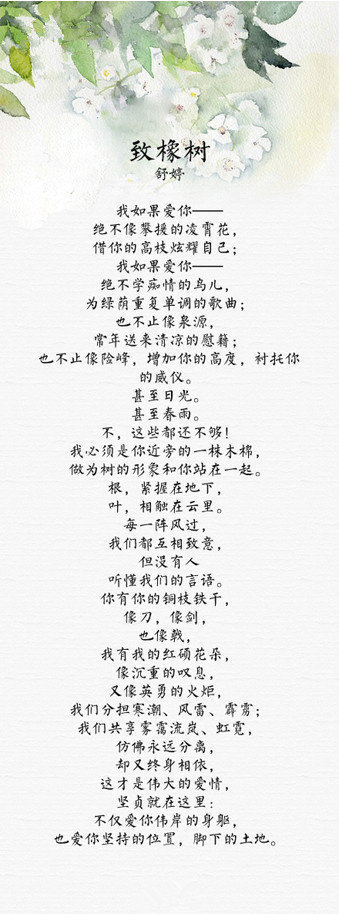 致橡树
舒婷
我如果爱你——
绝不像攀援的凌霄花，
借你的高枝炫耀自己；
我如果爱你——
绝不学痴情的鸟儿，
为绿荫重复单调的歌曲；
也不止像泉源，
常年送来清凉的慰籍；
也不止像险峰，增加你的高度，衬托你
的威仪。
甚至日光。
甚至春雨。
不，这些都还不够！
我必须是你近旁的一株木棉，
做为树的形象和你站在一起。
根，紧握在地下，
叶，相触在云里。
每一阵风过，
我们都互相致意，
但没有人
听懂我们的言语。
你有你的铜枝铁干，
像刀，像剑，
也像戟，
我有我的红硕花朵，
像沉重的叹息，
又像英勇的火炬，
我们分担寒潮、风雷、霹雳；
我们共享雾霭流岚、虹霓，
仿佛永远分离，
却又终身相依，
这才是伟大的爱情，
坚贞就在这里：
不仅爱你伟岸的身躯，
也爱你坚持的位置，脚下的土地。